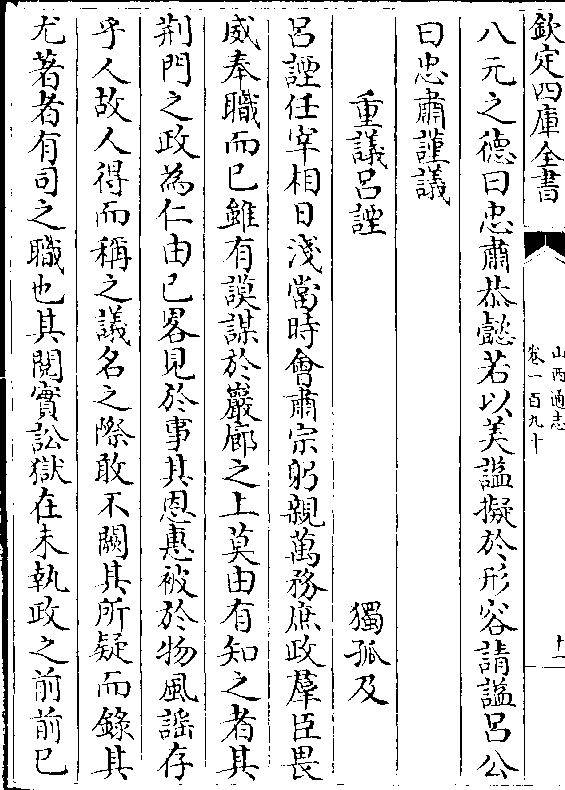 欽定四庫全書
山西通志
卷一百九十
十一
八元之德曰忠肅恭懿若以美諡擬於形容請諡呂公
曰忠肅謹議
重議呂諲
獨孤及
呂諲任宰相日淺當時會肅宗躬親萬務庶政羣臣畏
威奉職而已雖有謨謀於巖廊之上莫由有知之者其
荆門之政為仁由已畧見於事其恩惠被於物風謡存
乎人故人得而稱之議名之際敢不闕其所疑而錄其
尤著者有司之職也其閱實訟獄在未執政之前前已